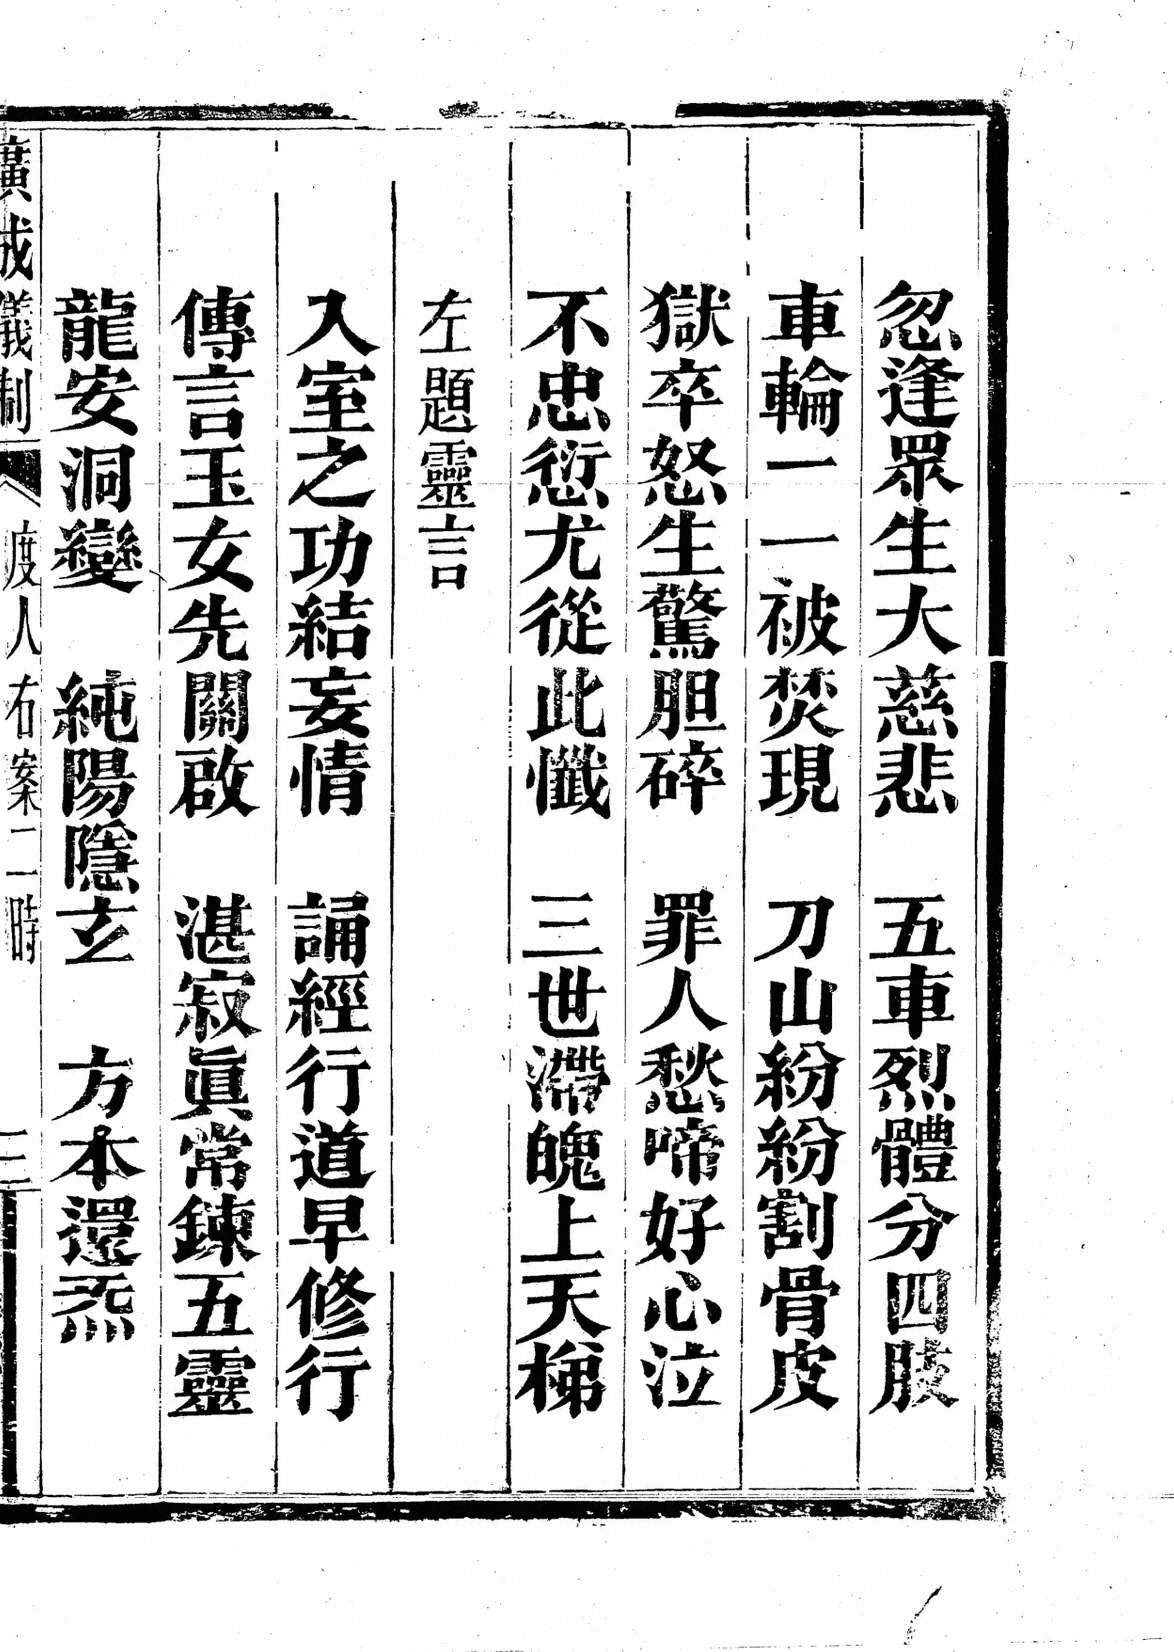 忽逢眾生大慈悲　五車烈體分四肢
車輪一一被焚現　刀山紛紛割骨皮
獄卒怒生驚胆碎　罪人愁啼好心泣
不忠愆尤從此懺　三世滯魄上天梯
左題靈言
入室之功結妄情　誦經行道早修行
傳言玉女先關啟　湛寂眞常鍊五靈
龍安洞變　純陽隱玄　方本還炁
廣成儀制　度人右案二時　三